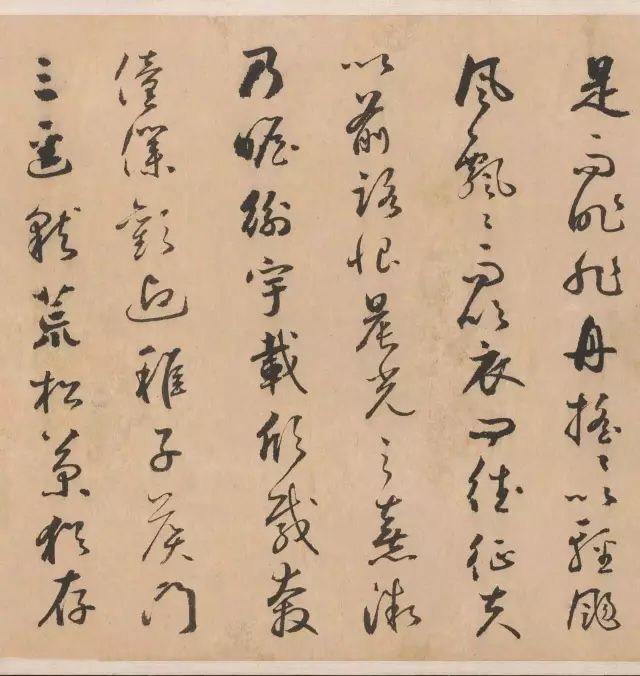 是而昨非舟搖〻以輕颺
風飄〻而吹衣問往征夫
以前路恨晨光之熹微
乃瞻衡宇載欣載奔
僮僕歡迎稚子候門
三逕就荒松菊猶存